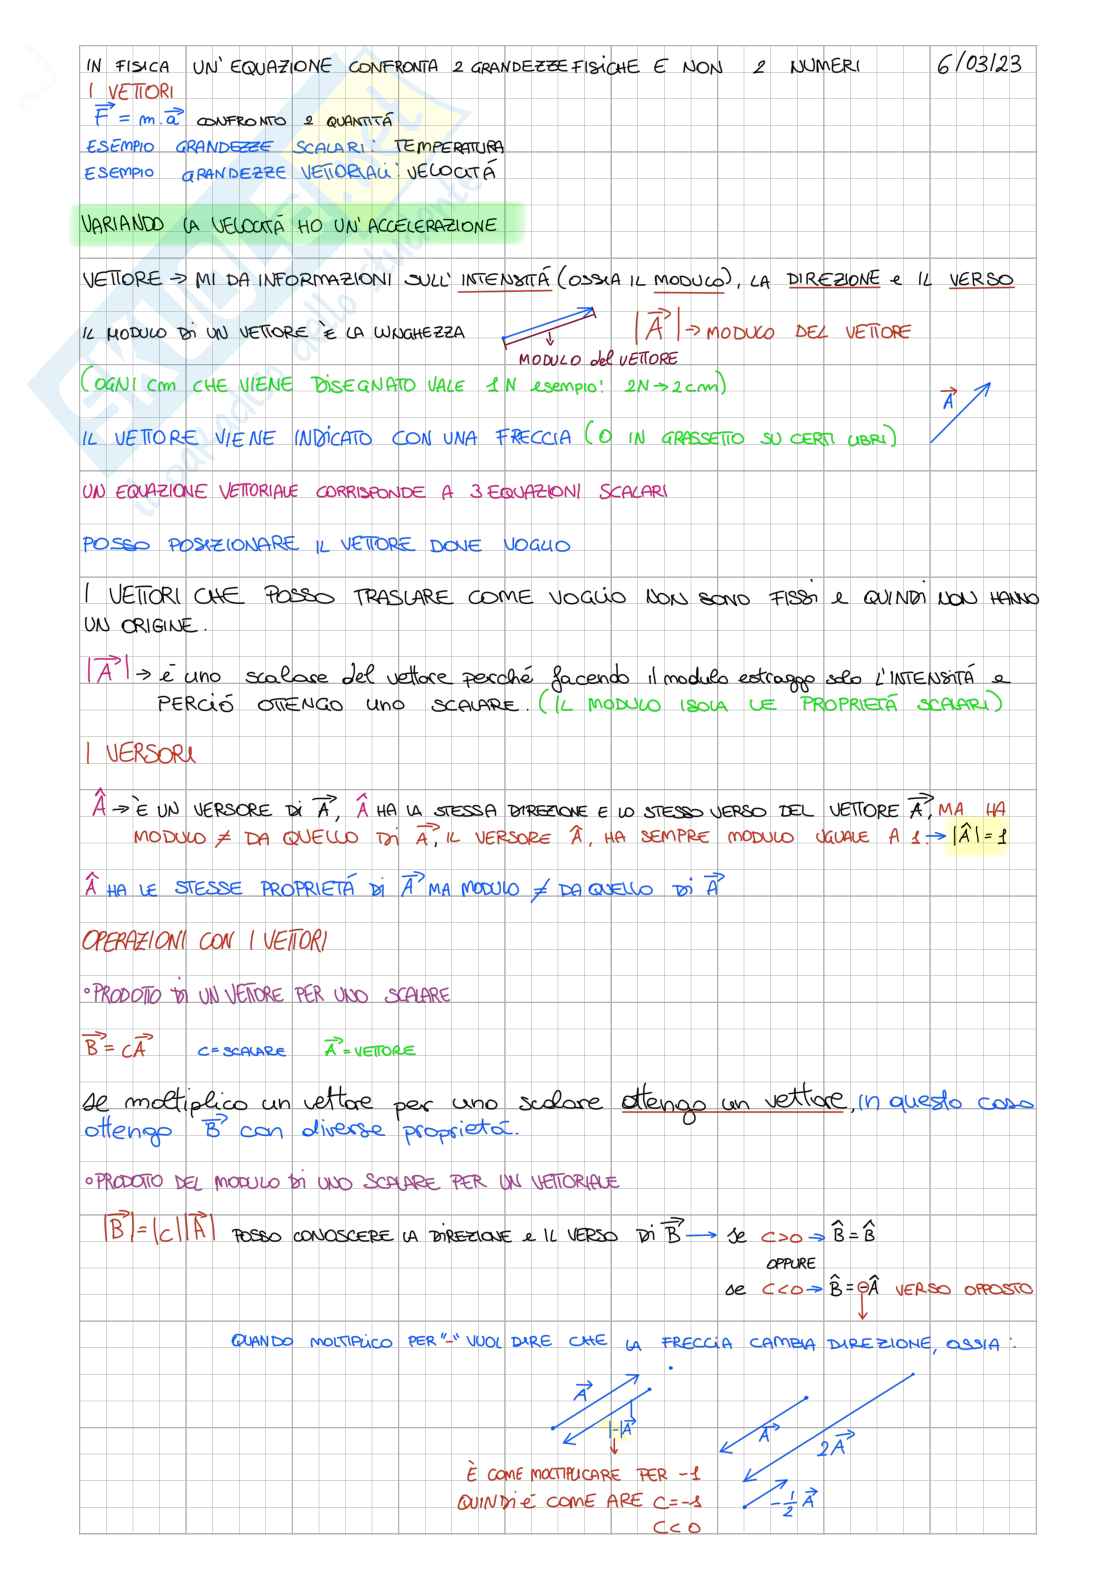 IN FISICA UN'EQUAZIONE CONFRONTA 2 GRANDEZZE FISICHE E NON 2 NUMERI 6/03/23
I VETTORI
F⃗ = m·a⃗ CONFRONTO 2 QUANTITÁ
ESEMPIO GRANDEZZE SCALARI: TEMPERATURA
ESEMPIO GRANDEZZE VETTORIALI: VELOCITÁ
VARIANDO LA VELOCITÁ HO UN'ACCELERAZIONE
VETTORE → MI DA INFORMAZIONI SULL'INTENSITÁ (OSSIA IL MODULO), LA DIREZIONE e IL VERSO
IL MODULO DI UN VETTORE È LA LUNGHEZZA |A⃗| → MODULO DEL VETTORE
MODULO del VETTORE
(OGNI cm CHE VIENE DISEGNATO VALE 1N esempio: 2N→2cm)
A⃗
IL VETTORE VIENE INDICATO CON UNA FRECCIA (O IN GRASSETTO SU CERTI LIBRI)
UN EQUAZIONE VETTORIALE CORRISPONDE A 3 EQUAZIONI SCALARI
POSSO POSIZIONARE IL VETTORE DONE VOGLIO
I VETTORI CHE POSSO TRASLARE COME VOGLIO NON SONO FISSI e QUINDI NON HANNO
UN ORIGINE.
|A⃗| → é uno scalare del vettore perché facendo il modulo estraggo solo L'INTENSITÁ e
PERCIÓ OTTENGO UNO SCALARE. (IL MODULO ISOLA LE PROPRIETÁ SCALARI)
I VERSORI
Â → È UN VERSORE DI A⃗, Â HA LA STESSA DIREZIONE E LO STESSO VERSO DEL VETTORE A⃗, MA HA
MODULO ≠ DA QUELLO DI A⃗, IL VERSORE Â, HA SEMPRE MODULO UGUALE A 1. → |Â| = 1
Â HA LE STESSE PROPRIETÁ DI A⃗ MA MODULO ≠ DA QUELLO DI A⃗
OPERAZIONI CON I VETTORI
° PRODOTTO DI UN VETTORE PER UNO SCALARE
B⃗ = cA⃗ C = SCALARE A⃗ = VETTORE
se moltiplico un vettore per uno scalare ottengo un vettore, in questo caso
ottengo B⃗ con diverse proprietá.
° PRODOTTO DEL MODULO DI UNO SCALARE PER UN VETTORIALE
|B⃗| = |c||A⃗| POSSO CONOSCERE LA DIREZIONE e IL VERSO DI B⃗ → se C>0 → B̂ = B̂
OPPURE
se C<0 → B̂ = -Â VERSO OPPOSTO
QUANDO MOLTIPLICO PER "-" VUOL DIRE CHE LA FRECCIA CAMBIA DIREZIONE, OSSIA:
A⃗
|-|A⃗ A⃗ 2A⃗
È COME MOLTIPLICARE PER -1
QUINDI É COME ARE C=-1 -1/2 A⃗
C<0
SKUOLA.net
il paradiso dello studente